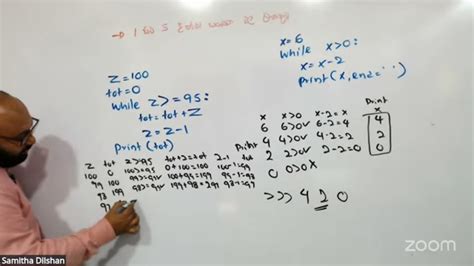 z=100
tot=0
while z>=95:
tot=tot+z
z=z-1
print(tot)
x=6
while x>0:
x=x-2
print(x,end=' ')
z tot z>=95 tot+z=tot z-1 tot Print
100 0 100>=95 0+100=100 100-1=99
99 100 99>=95 100+99=199 99-1=98
98 199 98>=95 199+98=297 98-1=97
97
Print
x x>0 x-2=x x
6 6>0✓ 6-2=4 4
4 4>0✓ 4-2=2 2
2 2>0✓ 2-2=0 0
0 0>0x
>>> 4 2 0
Samitha Dilshan
zoom